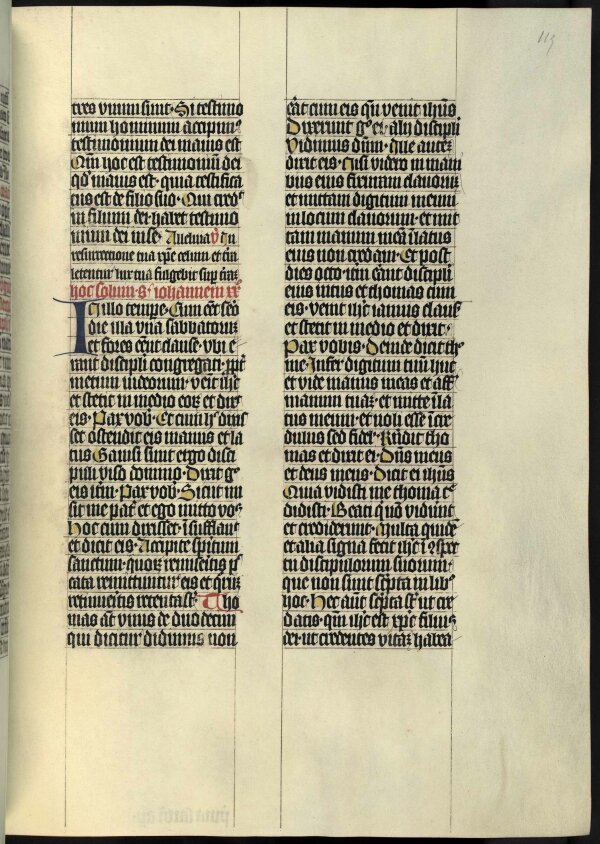 113
tres vnum sunt. Si testimo
nium hominum accipimꝰ
testimonium dei maius est
Qm̄ hoc est testimoniū dei
qd̓ maius est. quia testifica
tus est de filio suo. Qui cred̓
in filium dei. habet testimo
nium dei in se. Alleluia ꝟ In
resurrectione tua xp̄e celum et t̄ra
letentur
hoc solum. S. iohannem xx
In illo tempe. Cum eēt sēo
die illa vna sabbatorum
et fores eēnt clause. vbi e
rant discipli congregati. ꝓpt̓
metum iudeorum. venit ih̄c
et stetit in medio eoꝝ et dix̓
eis. Pax vob̓. Et cum h̓ dixis
set ostendit eis manus et la
tus Gauisi sunt ergo disci
puli viso domino. Dixit g̊
eis it̓m. Pax vob̓. Sicut mi
sit me pat̓ et ego mitto vos
Hoc cum dixisset. īsufflauit
et dixit eis. Accipite spiritum
sanctum. quoꝝ remiseritis pc̄
cata remittuntur eis et quoꝝ
retinueritis retenta st̄. Tho
mas aūt vnus de duodecim
qui dicitur didimus non
erāt cum eis qn̄ venit ih̄us
Dixerunt g̊ ei alii discipli
Vidimus dūm. Ille autē
dixit eis. Nisi videro in mani
bus eius fixuram clauorum
et mittam digitum meum
in locum clauorum. et mit
tam manum meā ī latus
eius non credam. Et post
dies octo. itm̄ erant discipli
eius intus et thomas cum
eis. venit ih̄c ianuis clausꝭ
et stetit in medio et dixit.
Pax vobis. Deinde dicit th
me. Infer digitum tuū huc
et vide manus meas et aff̓
manum tuaꝫ. et mitte ī la
tus meum. et noli esse īcre
dulus sed fidel̓. Rn̄dit tho
mas et dixit ei. Dn̄s meus
et deus meus. Dicit ei ih̄us
Quia vidisti me thoma c̓
didisti. Beati qui nō vid̓unt
et crediderunt. Multa quidē
et alia signa fecit ih̄c ī ꝯspec
tu discipulorum suorum.
que non sunt sc̓pta in lib̓
hoc. Hec aūt sc̓pta st̄. ut cre
datis. quia ih̄c est xp̄c filius
dei. ut credentes vitaꝫ habea